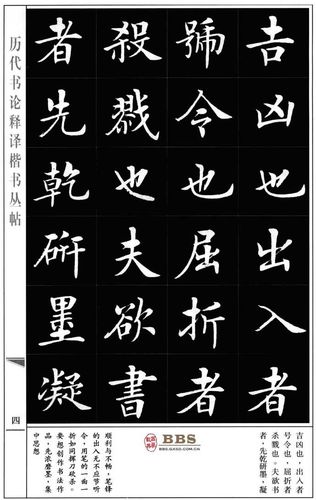 吉凶也出入者
號令也屈折者
殺戮也夫欲書
者先乾研墨凝
历代书论释译楷书丛帖
四
吉凶也，出入者
号令也，屈折者
杀戮也。夫欲书
者，先乾研墨，凝
BBS
BBS.GXSD.COM.CN
顺利与不畅，笔锋
的出入无不应节听
令，用笔的一曲一
折如同挥刀砍杀。
要想创作书法作
品，先浓磨墨，集
中思想